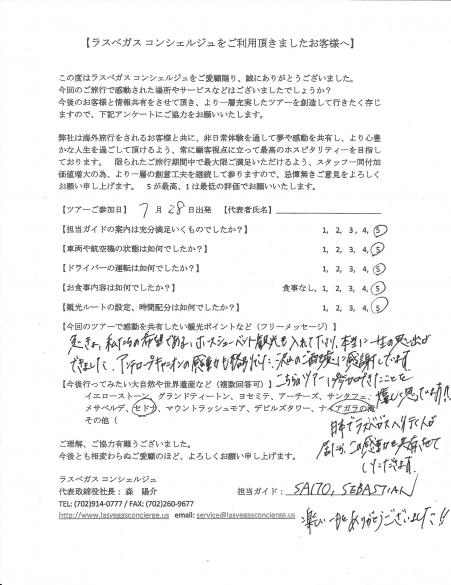 【ラスベガス コンシェルジュをご利用頂きましたお客様へ】
この度はラスベガス コンシェルジュをご愛顧賜り、誠にありがとうございました。
今回のご旅行で感動された場所やサービスなどはございましたでしょうか?
今後のお客様と情報共有をさせて頂き、より一層充実したツアーを創造して行きたく存じ
ますので、下記アンケートにご協力をお願いいたします。
弊社は海外旅行をされるお客様と共に、非日常体験を通して夢や感動を共有し、より心豊
かな人生を過ごして頂けるよう、常に顧客視点に立って最高のホスピタリティーを目指し
ております。 限られたご旅行期間中で最大限ご満足いただけるよう、スタッフ一同付加
価値増大の為、より一層の創意工夫を継続して参りますので、忌憚無きご意見をよろしく
お願い申し上げます。 5が最高、1は最低の評価でお願いいたします。
【ツアーご参加日】 7 月 28 日出発 【代表者氏名】
【担当ガイドの案内は充分満足いくものでしたか?】 1, 2, 3, 4, 5
【車両や航空機の状態は如何でしたか?】 1, 2, 3, 4, 5
【ドライバーの運転は如何でしたか?】 1, 2, 3, 4, 5
【お食事内容は如何でしたか?】 食事なし, 1, 2, 3, 4, 5
【観光ルートの設定、時間配分は如何でしたか?】 1, 2, 3, 4, 5
【今回のツアーで感動を共有したい観光ポイントなど(フリーメッセージ)】
私たちの希望であるホースシューベント観光も入れてただり、本当に一生の思い出が
できました。アンテロープキャニオンの感動も
に感謝しています
【今後行ってみたい大自然や世界遺産など(複数回答可)】こちらのツアーに参加できたことを
イエローストーン、グランドティートン、ヨセミテ、アーチーズ、サンタフェ、嬉しく思います!!
メサベルデ、セドナ、マウントラッシュモア、デビルズタワー、ナイアガラの滝
その他(
日本でラスベガスへ行く人が
居れば、この感動を共有させて
いただきます。
ご理解、ご協力有難うございました。
今後とも相変わらぬご愛顧のほど、よろしくお願い申し上げます。
ラスベガス コンシェルジュ
代表取締役社長: 森 陽介 担当ガイド: SAITO, SEBASTIAN
TEL: (702)914-0777 / FAX: (702)260-9677
http://www.lasvegasconcierge.us email: service@lasvegasconcierge.us
楽しい一日をありがとうございました!!